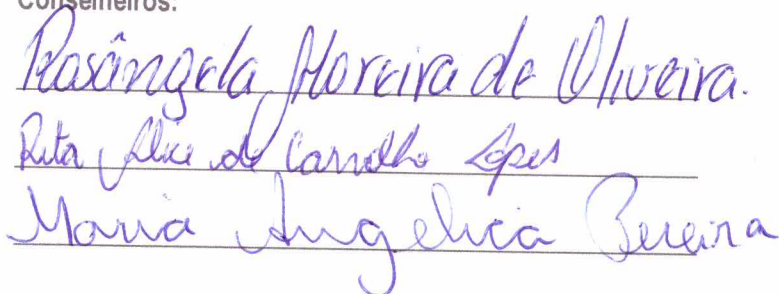 Conselheiros:
Rosângela Moreira de Oliveira.
Rita Alice de Carvalho Lopes
Maria Angelica Pereira